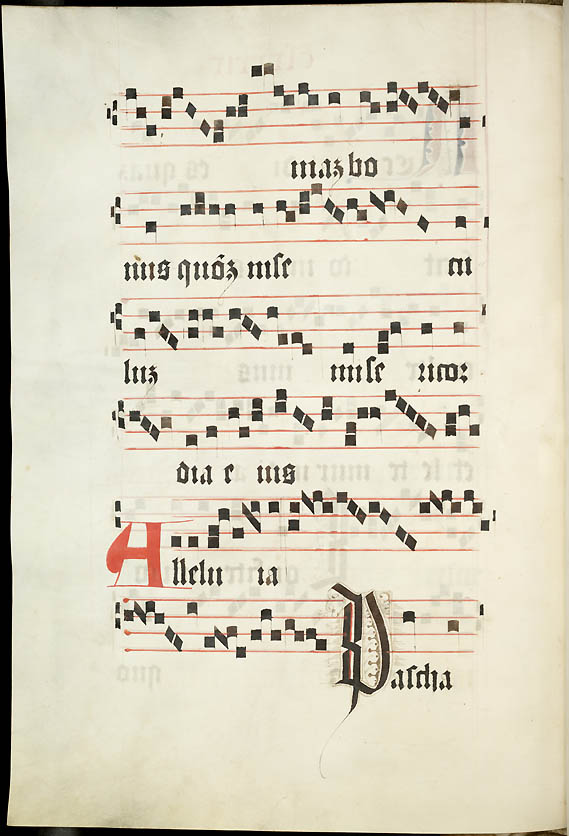 niaʒ bo
nus quōʒ in se cu
luʒ mise ricor
dia e ius
Allelu ia
Pascha